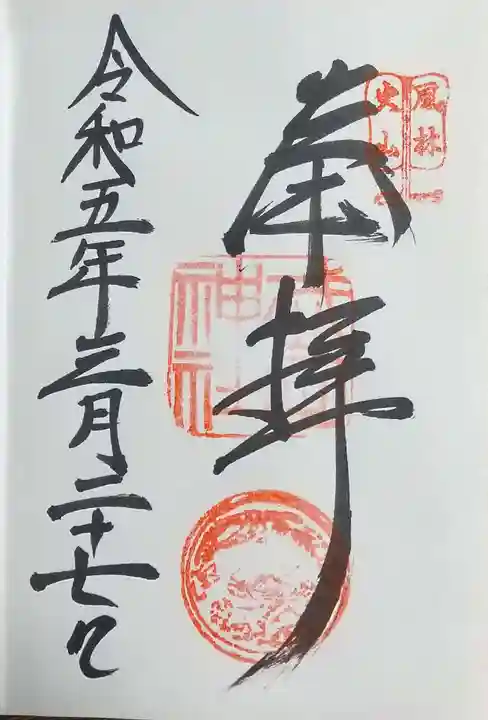 風林
火山
奉拝
令和五年三月二十七日